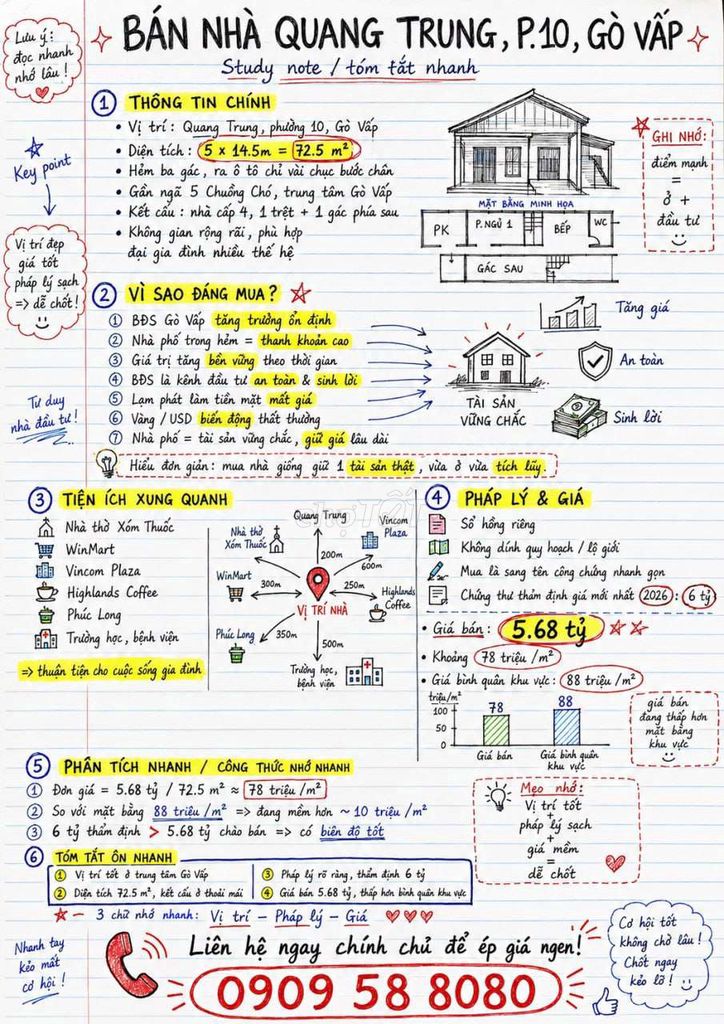 Lưu ý:
đọc nhanh
nhớ lâu!
BÁN NHÀ QUANG TRUNG, P.10, GÒ VẤP
Study note / tóm tắt nhanh
1 THÔNG TIN CHÍNH
• Vị trí: Quang Trung, phường 10, Gò Vấp
• Diện tích: 5 x 14.5m = 72.5 m²
• Hẻm ba gác, ra ô tô chỉ vài chục bước chân
• Gần ngã 5 Chuồng Chó, trung tâm Gò Vấp
• Kết cấu: nhà cấp 4, 1 trệt + 1 gác phía sau
• Không gian rộng rãi, phù hợp
đại gia đình nhiều thế hệ
Key point
Vị trí đẹp
giá tốt
pháp lý sạch
=> dễ chốt!
MẶT BẰNG MINH HỌA
PK
P.NGỦ 1
BẾP
WC
GÁC SAU
GHI NHỚ:
điểm mạnh
=
ở +
đầu tư
2 VÌ SAO ĐÁNG MUA?
1 BĐS Gò Vấp tăng trưởng ổn định
2 Nhà phố trong hẻm = thanh khoản cao
3 Giá trị tăng bền vững theo thời gian
4 BĐS là kênh đầu tư an toàn & sinh lời
5 Lạm phát làm tiền mặt mất giá
6 Vàng / USD biến động thất thường
7 Nhà phố = tài sản vững chắc, giữ giá lâu dài
Tư duy
nhà đầu tư!
TÀI SẢN
VỮNG CHẮC
Tăng giá
An toàn
Sinh lời
Hiểu đơn giản: mua nhà giống giữ 1 tài sản thật, vừa ở vừa tích lũy.
3 TIỆN ÍCH XUNG QUANH
Nhà thờ Xóm Thuốc
WinMart
Vincom Plaza
Highlands Coffee
Phúc Long
Trường học, bệnh viện
=> thuận tiện cho cuộc sống gia đình
chợTỐT
Quang Trung
Nhà thờ
Xóm Thuốc
Vincom
Plaza
200m
600m
WinMart
300m
250m
Highlands
Coffee
VỊ TRÍ NHÀ
Phúc Long
350m
500m
Trường học,
bệnh viện
4 PHÁP LÝ & GIÁ
Sổ hồng riêng
Không dính quy hoạch / lộ giới
Mua là sang tên công chứng nhanh gọn
Chứng thư thẩm định giá mới nhất 2026: 6 tỷ
• Giá bán: 5.68 tỷ
• Khoảng 78 triệu /m²
• Giá bình quân khu vực: 88 triệu /m²
triệu/m²
100
50
0
78
88
Giá bán
Giá bình quân
khu vực
giá bán
đang thấp hơn
mặt bằng
khu vực
5 PHÂN TÍCH NHANH / CÔNG THỨC NHỚ NHANH
1 Đơn giá = 5.68 tỷ / 72.5 m² ≈ 78 triệu /m²
2 So với mặt bằng 88 triệu /m² => đang mềm hơn ~ 10 triệu /m²
3 6 tỷ thẩm định > 5.68 tỷ chào bán => có biên độ tốt
Mẹo nhớ:
Vị trí tốt
+
pháp lý sạch
+
giá mềm
=
dễ chốt
6 TÓM TẮT ÔN NHANH
1 Vị trí tốt ở trung tâm Gò Vấp
2 Diện tích 72.5 m², kết cấu ở thoải mái
3 Pháp lý rõ ràng, thẩm định 6 tỷ
4 Giá bán 5.68 tỷ, thấp hơn bình quân khu vực
3 chữ nhớ nhanh: Vị trí – Pháp lý – Giá
Nhanh tay
kẻo mất
cơ hội!
Liên hệ ngay chính chủ để ép giá ngen!
0909 58 8080
Cơ hội tốt
không chờ lâu!
Chốt ngay
kẻo lỡ!